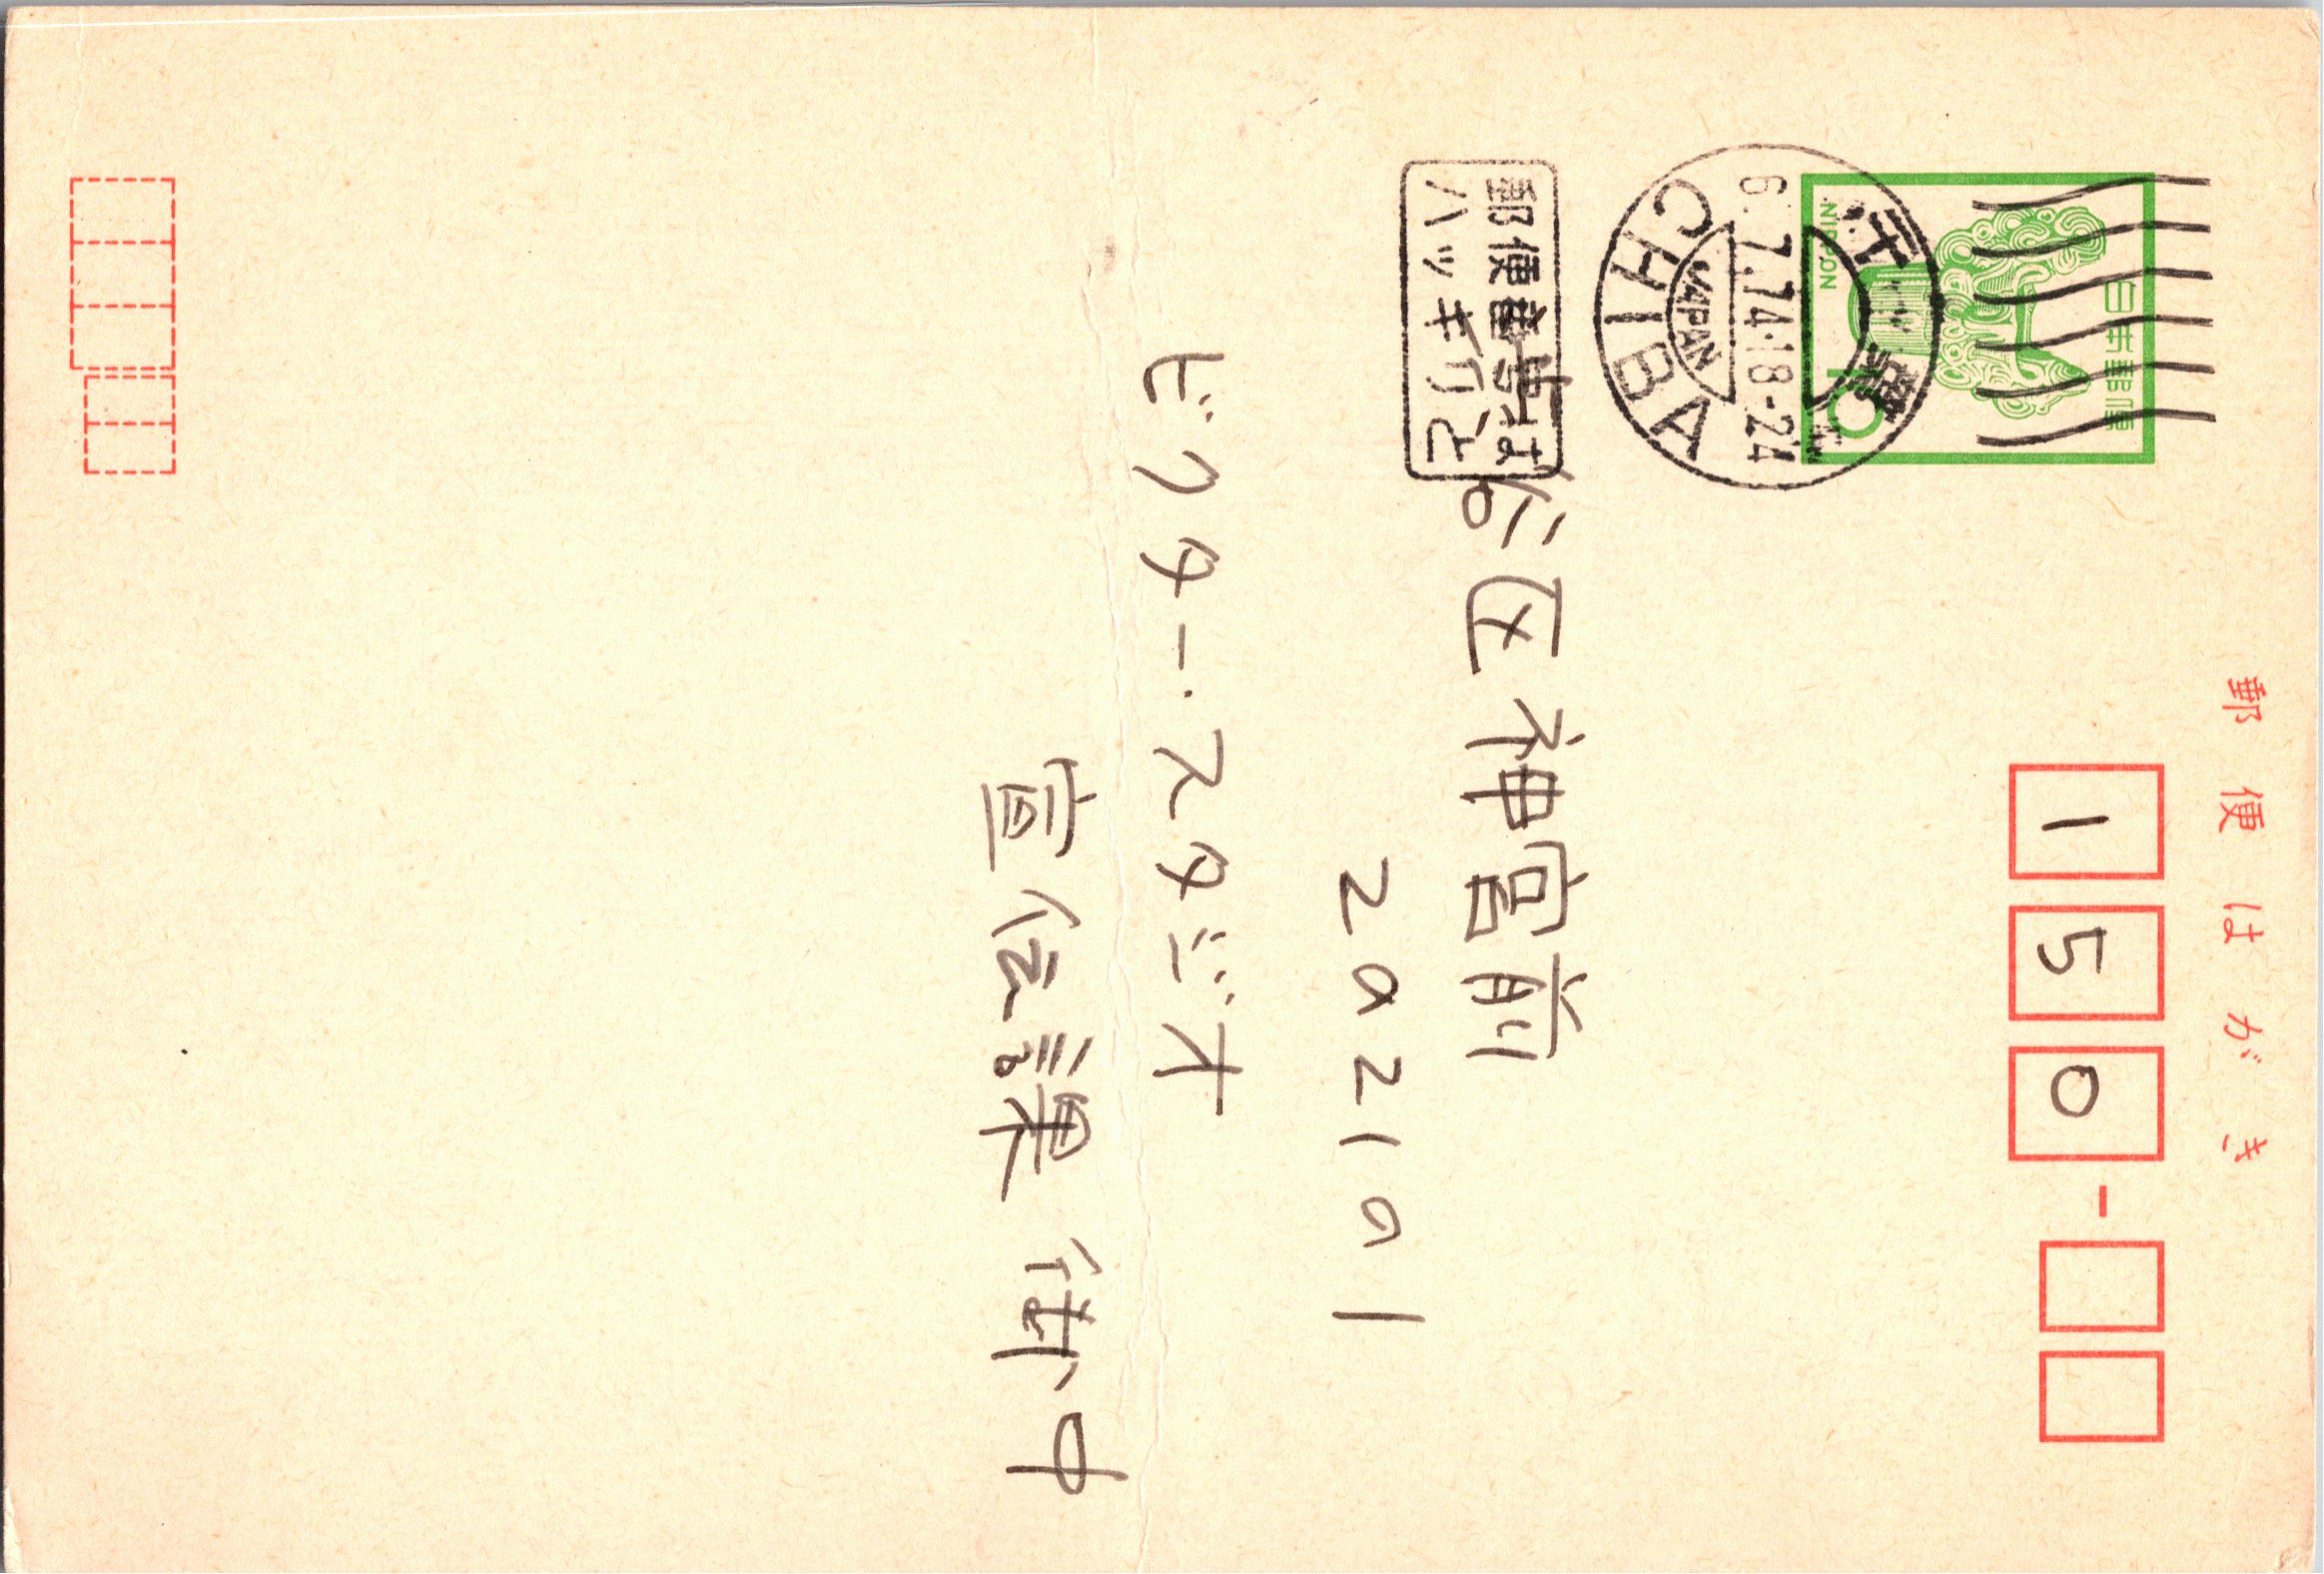 郵便はがき
150
日本郵便
10
NIPPON
千葉
6.7.74.18-24
JAPAN
CHIBA
郵便番号は
ハッキリと
谷区神宮前
2の21の1
ビクター・スタジオ
宣伝課 御中